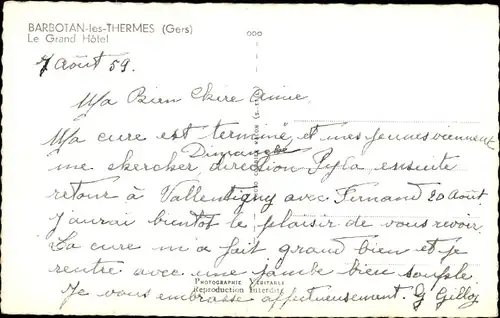 BARBOTAN-les-THERMES (Gers)
Le Grand Hôtel
7 Août 59.
Ma Bien Chère Amie,
Ma cure est terminé et mes jeunes viennent
Dimanche
me chercher, direction Pyla ensuite
retour à Vallentigny avec Fernand 20 Août
J'aurai bientôt le plaisir de vous revoir
La cure m'a fait grand bien et je
rentre avec une jambe bien souple
PHOTOGRAPHIE VÉRITABLE
Reproduction Interdite
Je vous embrasse affectueusement. G Gilloz